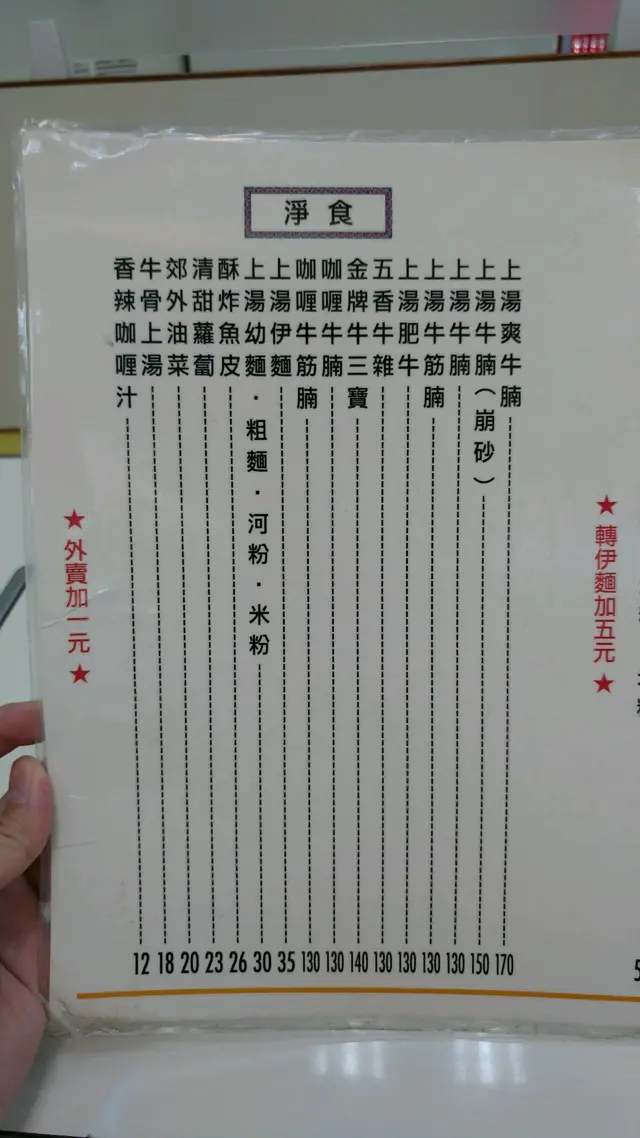 淨食
★轉伊麵加五元★
上湯爽牛腩 170
上湯牛腩（崩砂） 150
上湯牛腩 130
上湯牛筋腩 130
上湯肥牛 130
五香牛雜 130
金牌牛三寶 140
咖喱牛腩 130
咖喱牛筋腩 130
上湯伊麵 35
上湯幼麵．粗麵．河粉．米粉 30
酥炸魚皮 26
清甜蘿蔔 23
郊外油菜 20
牛骨上湯 18
香辣咖喱汁 12
★外賣加一元★